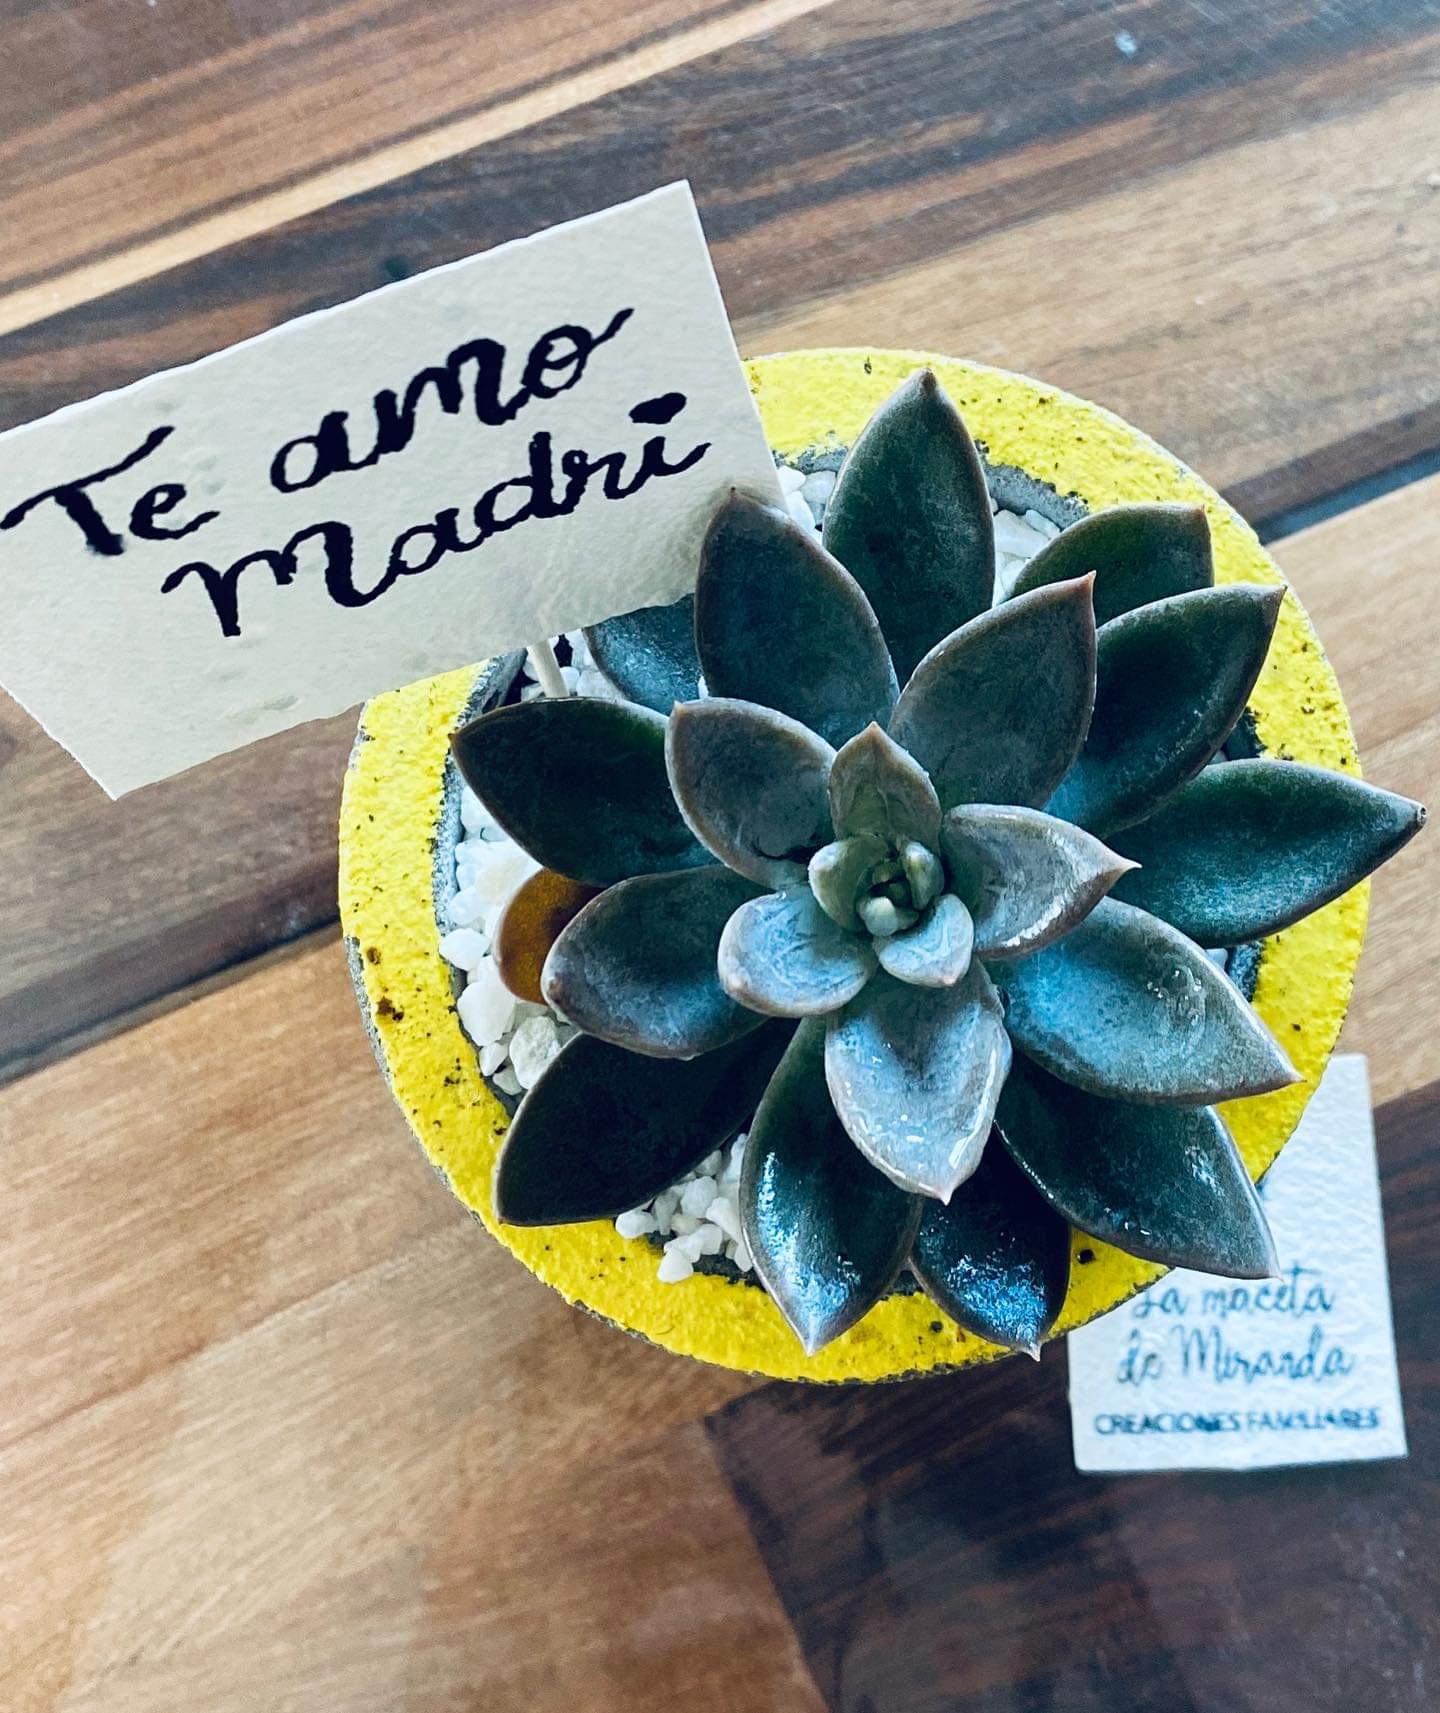 Te amo
Madri
La maceta
de Miranda
CREACIONES FAMILIARES